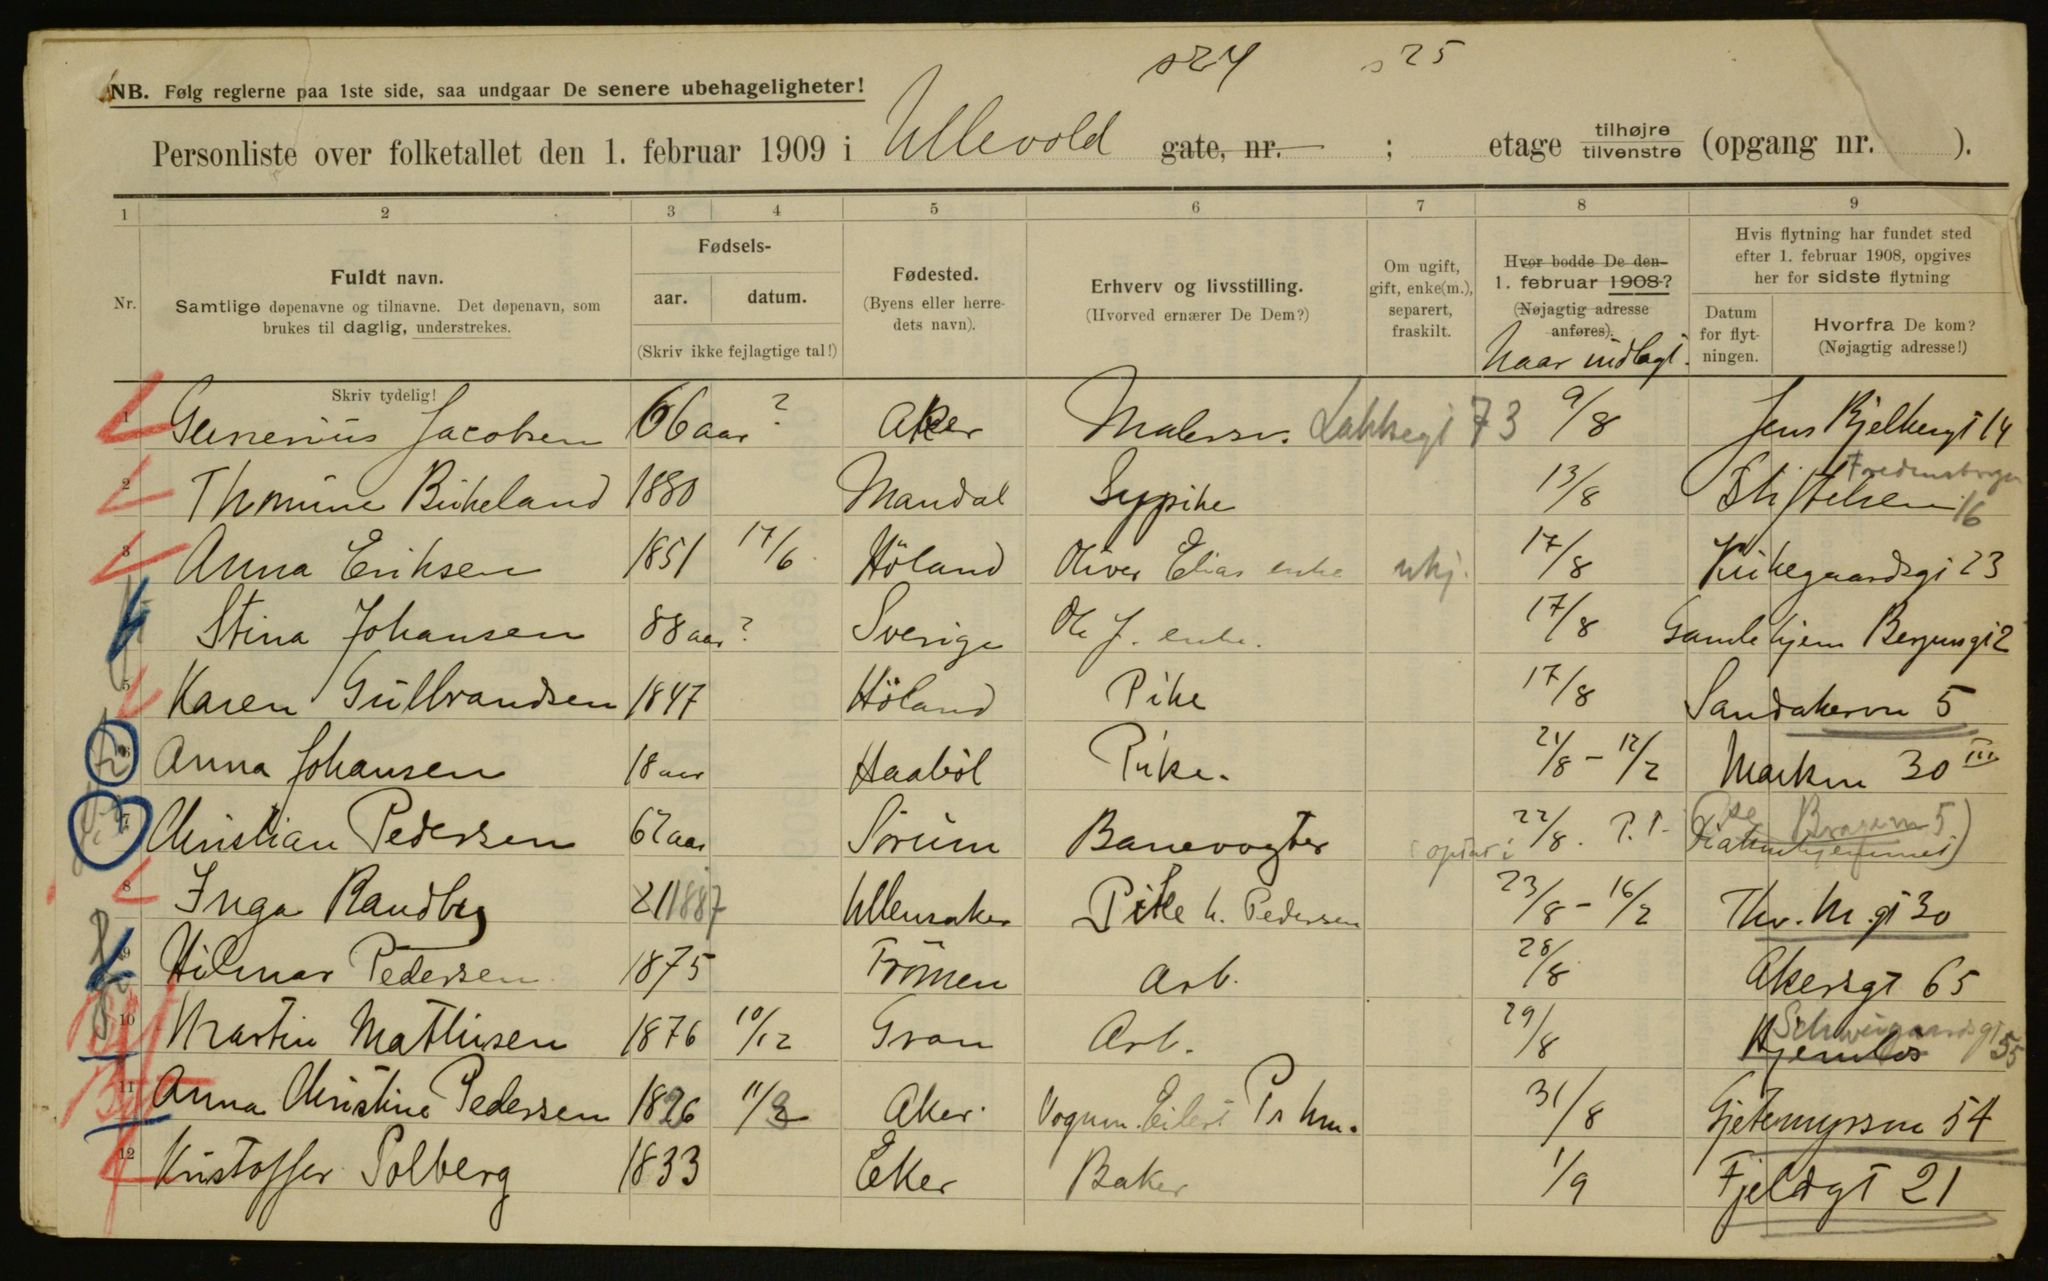 s24 s25
NB. Følg reglerne paa 1ste side, saa undgaar De senere ubehageligheter!
Personliste over folketallet den 1. februar 1909 i Ullevold gate, nr. ; etage tilhøjre tilvenstre (opgang nr. ).
1 2 3 4 5 6 7 8 9
Nr.
Fuldt navn.
Samtlige døpenavne og tilnavne. Det døpenavn, som
brukes til daglig, understrekes.
Skriv tydelig!
Fødsels-
aar. datum.
(Skriv ikke fejlagtige tal!)
Fødested.
(Byens eller herre-
dets navn).
Erhverv og livsstilling.
(Hvorved ernærer De Dem?)
Om ugift,
gift, enke(m.),
separert,
fraskilt.
Hvor bodde De den
1. februar 1908?
(Nøjagtig adresse
anføres).
Naar indlagt.
Hvis flytning har fundet sted
efter 1. februar 1908, opgives
her for sidste flytning
Datum
for flyt-
ningen.
Hvorfra De kom?
(Nøjagtig adresse!)
1 Gunerius Jacobsen 66 aar ? Aker Malersv. Lakkegt 73 9/8 Jens Bjelkesgt 14
2 Thomine Birkeland 1880 Mandal Sypike 13/8 Stiftelsen Fredensborgv 16
3 Anna Eriksen 1851 17/6 Höland Oliver Elias enke 17/8 Kirkegaardsgt 23
Stina Johansen 88 aar ? Sverige Ole J. enke. 17/8 Gamlehjem
5 Karen Gulbrandsen 1847 Höland Pike 17/8 Sandakervn 5
6 Anna Johansen 18 aar Haaböl Pike. 21/8 - 12/2 Markvn 30 III
7 Christian Pedersen 62 aar Sörum Banevogter 22/8. P.T.
8 Inga Randby 21 1887 Ullensaker Pike h. Pedersen 23/8 - 16/2 Thv. M. gt 30
9 Hilmar Pedersen 1875 Trömen Arb. 28/8 Akersgt 65
10 Martin Mathisen 1876 10/12 Gran Arb. 29/8 Hjemlös Schweigaardsgt 55
11 Anna Christine Pedersen 1826 11/2 Aker. Vognm. Eilert Ps hm. 31/8 Gjetemyrsvn 54
12 Kristoffer Solberg 1833 Eker Baker 1/9 Fjeldgt 21